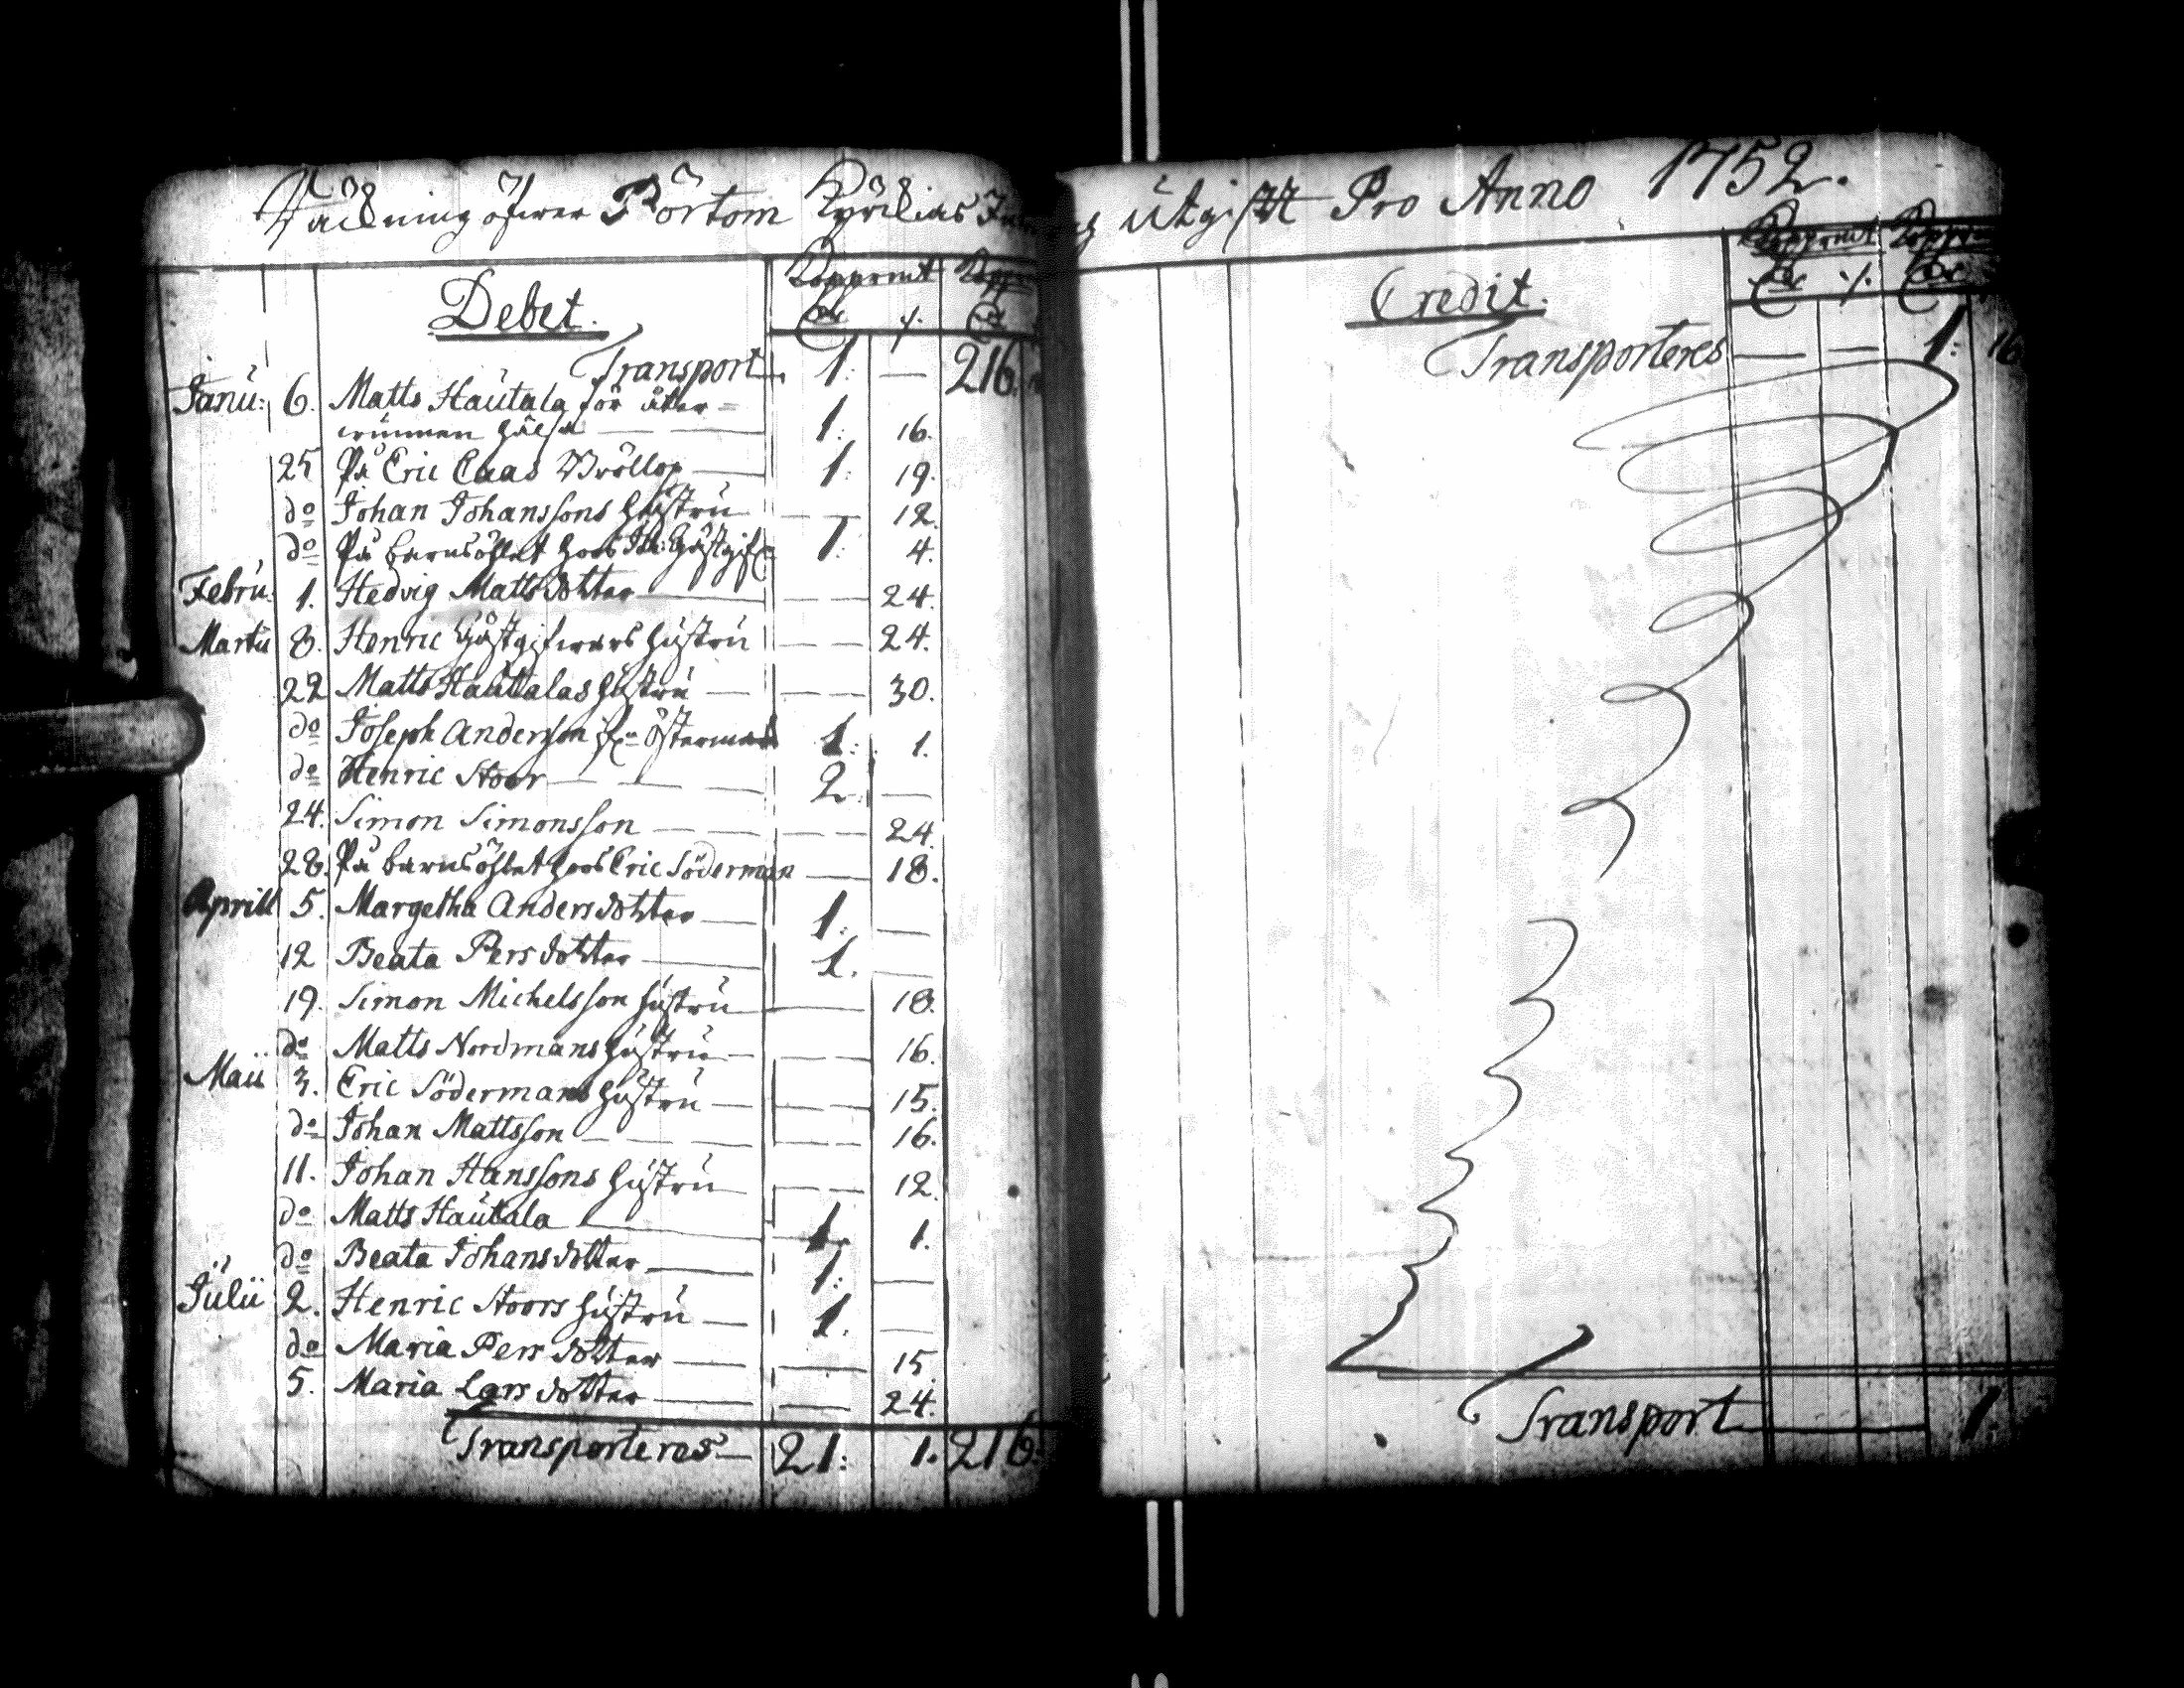 Räckning öfwer Pörtom Kyrckias In
og Utgifft Pro Anno 1752.
Debet. Koppermt Kopp
Transport 1: — 216:
Janu: 6. Matts Hautala för åter=
wunnen hälsa 1: 16.
25 På Eric Caas Bröllop 1: 19.
do Johan Johanssons hustru — 12.
do På barnsöhlet hoos Gästgif 1: 4.
Febru: 1. Hedvig Mattsdotter — 24.
Martii 8. Henric Gästgifwars hustru — 24.
22 Matts Hautalas hustru — 30.
do Joseph Andersson Östermark 1: 1.
do Henric Stoor 2 —
24. Simon Simonsson — 24
28. På barnsöhlet hoos Eric Söderman — 18.
Aprill 5. Margetha Andersdotter 1: —
12 Beata Persdotter 1. —
19. Simon Michelsson hustru — 18.
do Matts Nordmans hustru — 16.
Maii 3. Eric Södermans hustru — 15.
do Johan Mattsson — 16.
11. Johan Hanssons hustru — 12.
do Matts Hautala 1 1.
do Beata Johansdotter 1: —
Julii 2. Henric Stoors hustru 1. —
do Maria Persdotter — 15
5. Maria Larsdotter — 24.
Transporteres 21: 1. 216:
Credit. Koppermt
Transporteres — — 1: 16
Transport 1